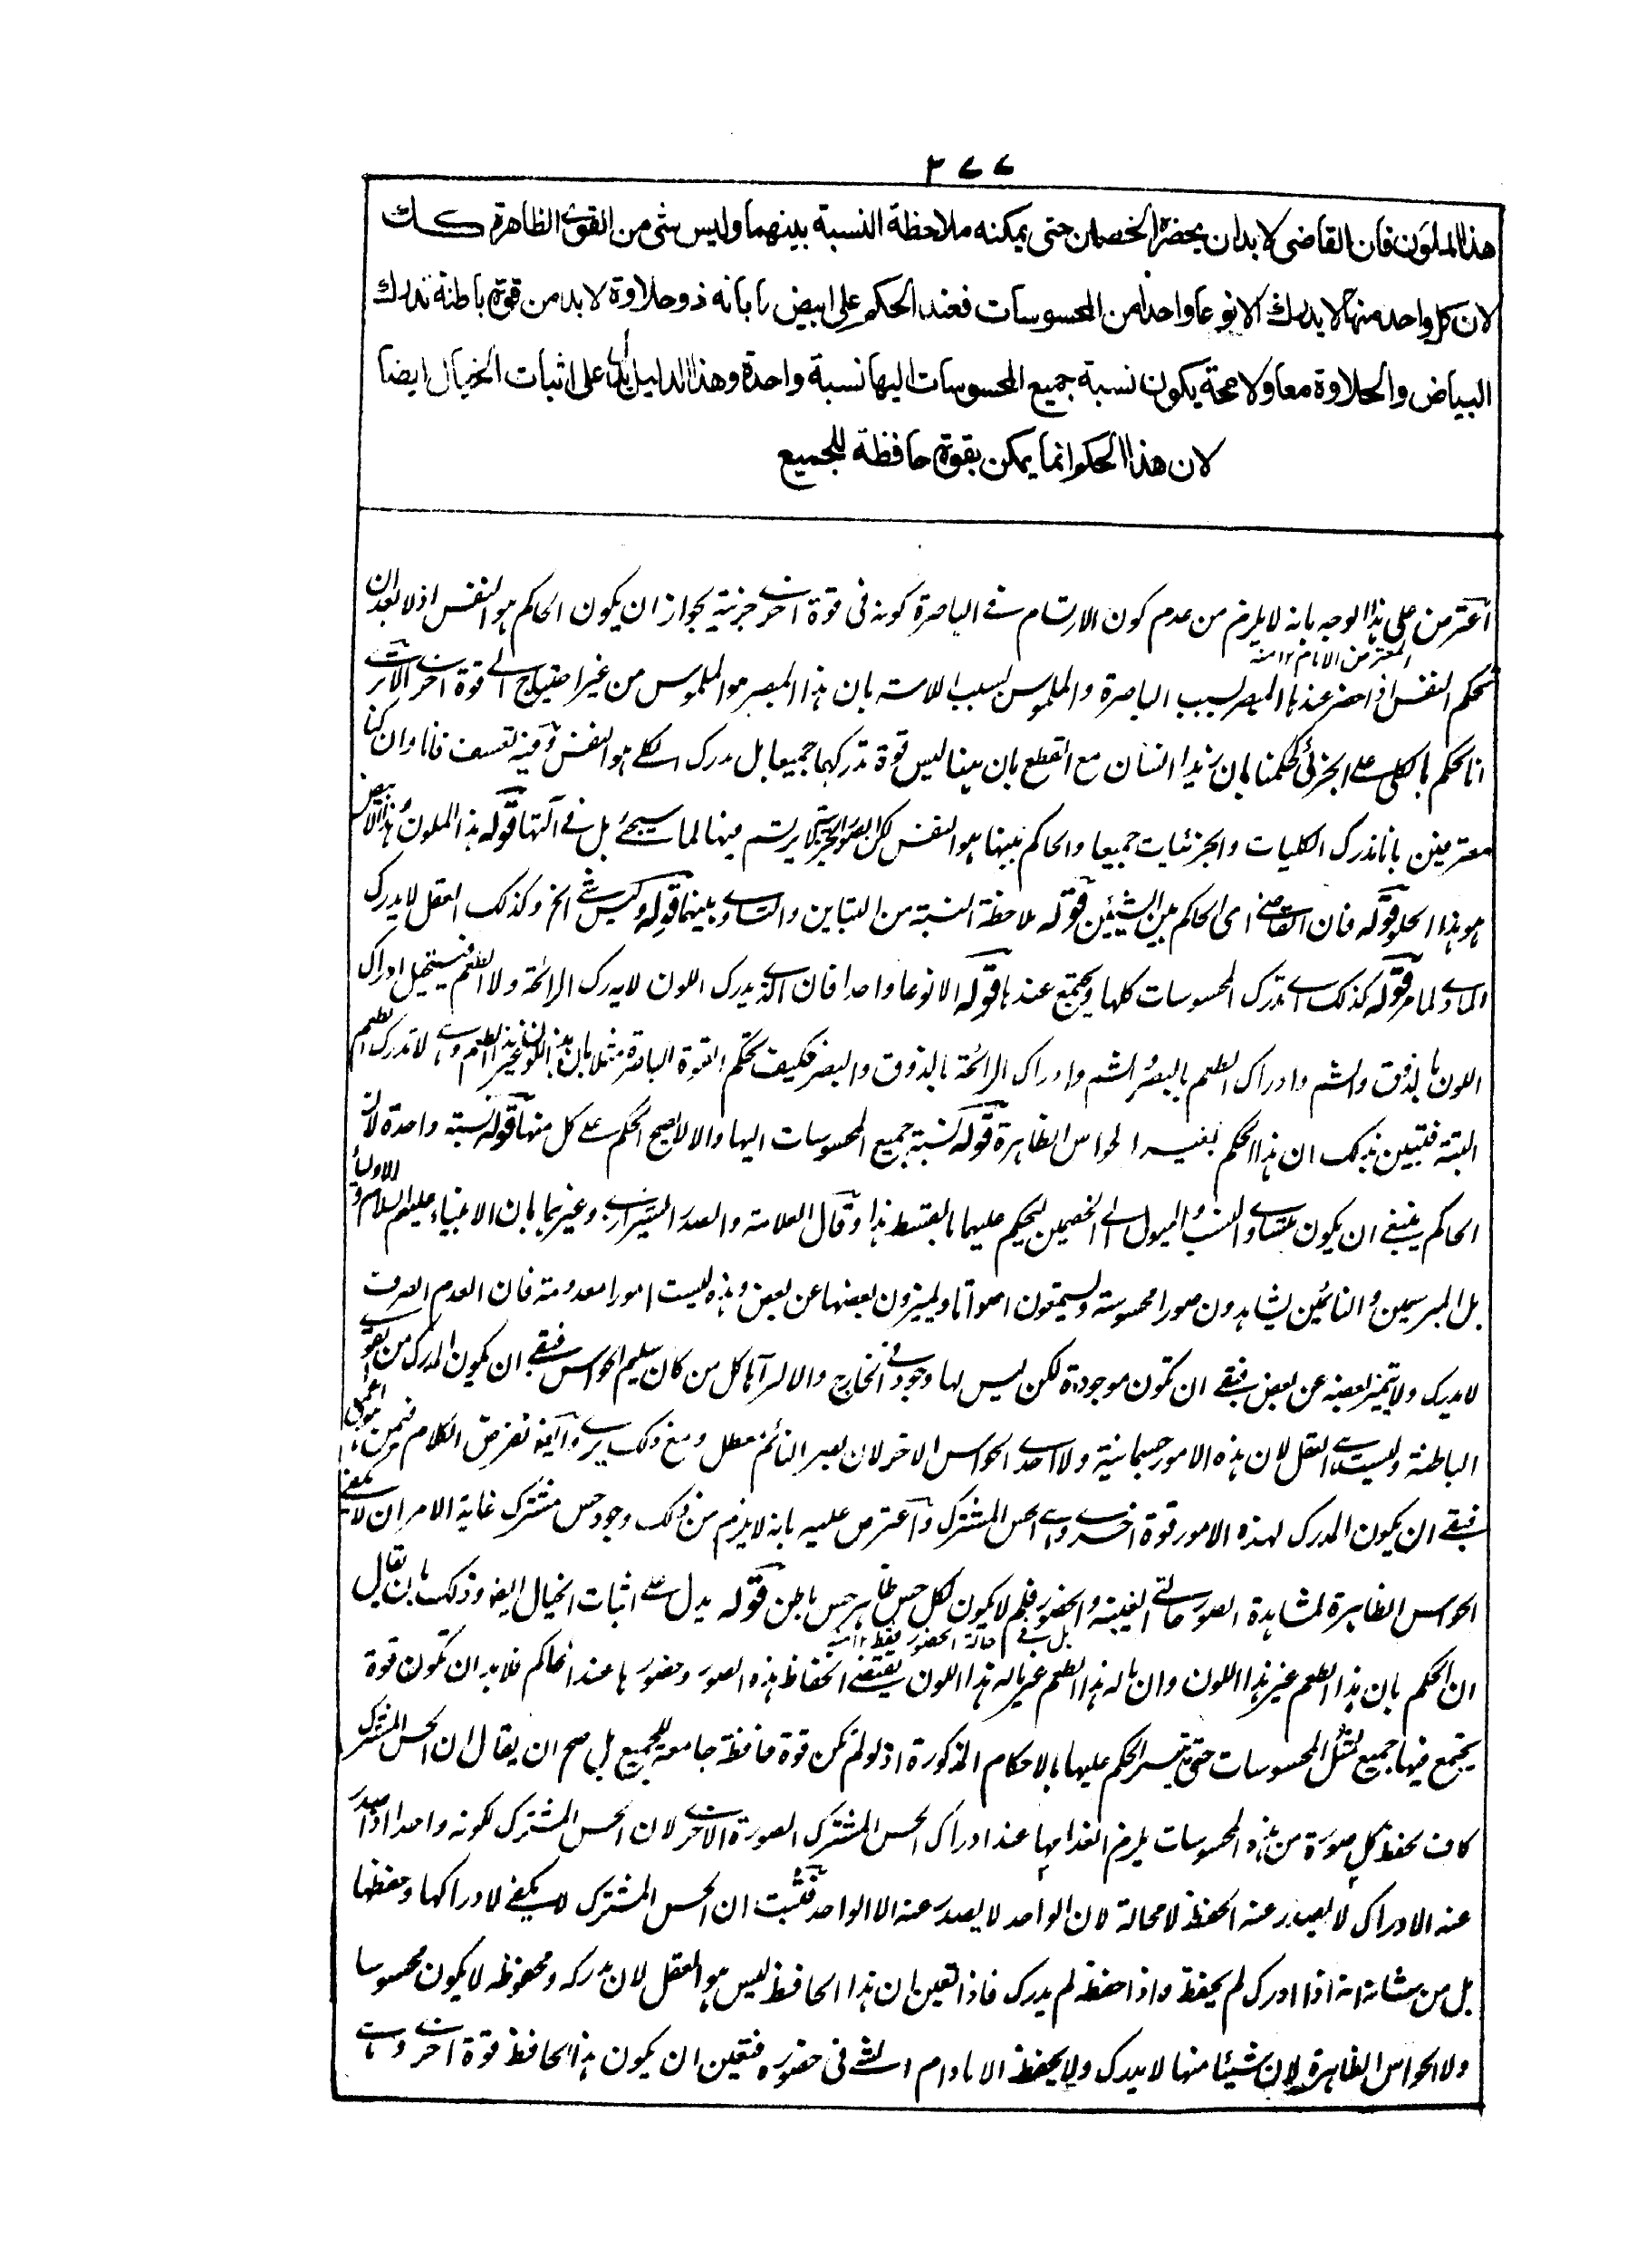 ٣٧٧
هذا الملون فان القاضى لابدان يحضره الخصمان حتى يمكنه ملاحظة النسبة بينهما وليس شئ من القوى الظاهرة كك
لان كل واحد منها لا يدرك الا نوعا واحدا من المحسوسات فعند الحكم على ابيض ما بانه ذو حلاوة لابد من قوة باطنة تدرك
البياض والحلاوة معا ولا محة يكون نسبة جميع المحسوسات اليها نسبة واحدة وهذا الدليل يدل على اثبات الخيال ايضا
لان هذا الحكم انما يمكن بقوة حافظة للجميع
اعترض على هذا الوجه بانه لا يلزم من عدم كون الارتسام في الباصرة كونه فى قوة اخرى جزئية لجواز ان يكون الحاكم هو النفس اذ لا بعد ان
المعترض الامام ١٢ منه
تحكم النفس اذا حضر عندها المبصر بسبب الباصرة والملموس بسبب اللامسة بان هذا المبصر هو الملموس من غير احتياج الى قوة اخرى الا ترى
انا نحكم بالكلى على الجزئى كحكمنا بان زيدا انسان مع القطع بان ليس فينا قوة تدركهما جميعا بل مدرك الكلى هو النفس وفيه تعسف فانا وان كنا
معترفين بانا ندرك الكليات والجزئيات جميعا والحاكم بينها هو النفس لكن الصور الجزئية لا يرتسم فيها لما سيجئ بل فى آلتها قوله هذا الملون هذا الابيض
هو هذا الحلو قوله فان القاضى اى الحاكم بين الشيئين قوله ملاحظة النسبة من التباين والتساوى بينهما قوله وليس شئ الخ وكذلك العقل لا يدرك
المادى لما مر قوله كذلك اى تدرك المحسوسات كلها ويجتمع عندها قوله الا نوعا واحدا فان الذى يدرك اللون لا يدرك الرائحة ولا الطعم فيستحيل ادراك
اللون بالذوق والشم وادراك الطعم بالبصر والشم وادراك الرائحة بالذوق والبصر فكيف تحكم القوة الباصرة مثلا بان هذا اللون غير هذا الطعم وهى لا تدرك الطعم
البتة فتبين بذلك ان هذا الحكم لغير الحواس الظاهرة قوله نسبة جميع المحسوسات اليها والا لا يصح الحكم على كل منها قوله نسبة واحدة لان
الحاكم ينبغى ان يكون متساوى النسب والميول الى الخصمين ليحكم عليهما بالقسط هذا وقال العلامة والصدر الشيرازى وغيرهما بان الانبياء عليهم السلام والاولياء
بل المبرسمين والنائمين يشاهدون صورا محسوسة ويسمعون اصواتا ويميزون بعضها عن بعض وهذه ليست امورا معدومة فان العدم الصرف
لا يدرك ولا يتميز بعضه عن بعض فبقى ان تكون موجودة لكن ليس لها وجود فى الخارج والا لرآها كل من كان سليم الحواس فبقى ان يكون المدرك من القوى
الباطنة وليست هى العقل لان هذه الامور جسمانية ولا احدى الحواس الاخر لان بصر النائم معطل ومع ذلك يرى وايضا نفرض الكلام فيمن هو اعمى
فبقى ان يكون المدرك لهذه الامور قوة اخرى وهى الحس المشترك واعترض عليه بانه لا يلزم من ذلك وجود حس مشترك غاية الامر ان لا تكفى
الحواس الظاهرة لمشاهدة الصور حالتى الغيبة والحضور فلم لا يكون لكل حس ظاهر حس باطن قوله يدل على اثبات الخيال ايضا وذلك بان يقال
بل فى حالة الحضور فقط ١٢ منه
ان الحكم بان هذا الطعم غير هذا اللون وان ما له هذا الطعم غير ما له هذا اللون يقتضى انحفاظ هذه الصور وحضورها عند الحاكم فلابد ان تكون قوة
يجتمع فيها جميع مثل المحسوسات حتى يتيسر الحكم عليها بالاحكام المذكورة اذ لو لم تكن قوة حافظة جامعة للجميع بل صح ان يقال ان الحس المشترك
كاف بحفظ كل صورة من هذه المحسوسات يلزم انعدامها عند ادراك الحس المشترك الصورة الاخرى لان الحس المشترك لكونه واحدا اذا صدر
عنه الادراك لا يصدر عنه الحفظ لا محالة لان الواحد لا يصدر عنه الا الواحد فثبت ان الحس المشترك لا يكفى لادراكها وحفظها
بل من شانه انه اذا ادرك لم يحفظ واذا حفظ لم يدرك فاذا تعين ان هذا الحافظ ليس هو العقل لان مدركه ومحفوظه لا يكون محسوسا
ولا الحواس الظاهرة لان شيئا منها لا يدرك ولا يحفظ الا ما دام الشئ فى حضوره فتعين ان يكون هذا الحافظ قوة اخرى وهى